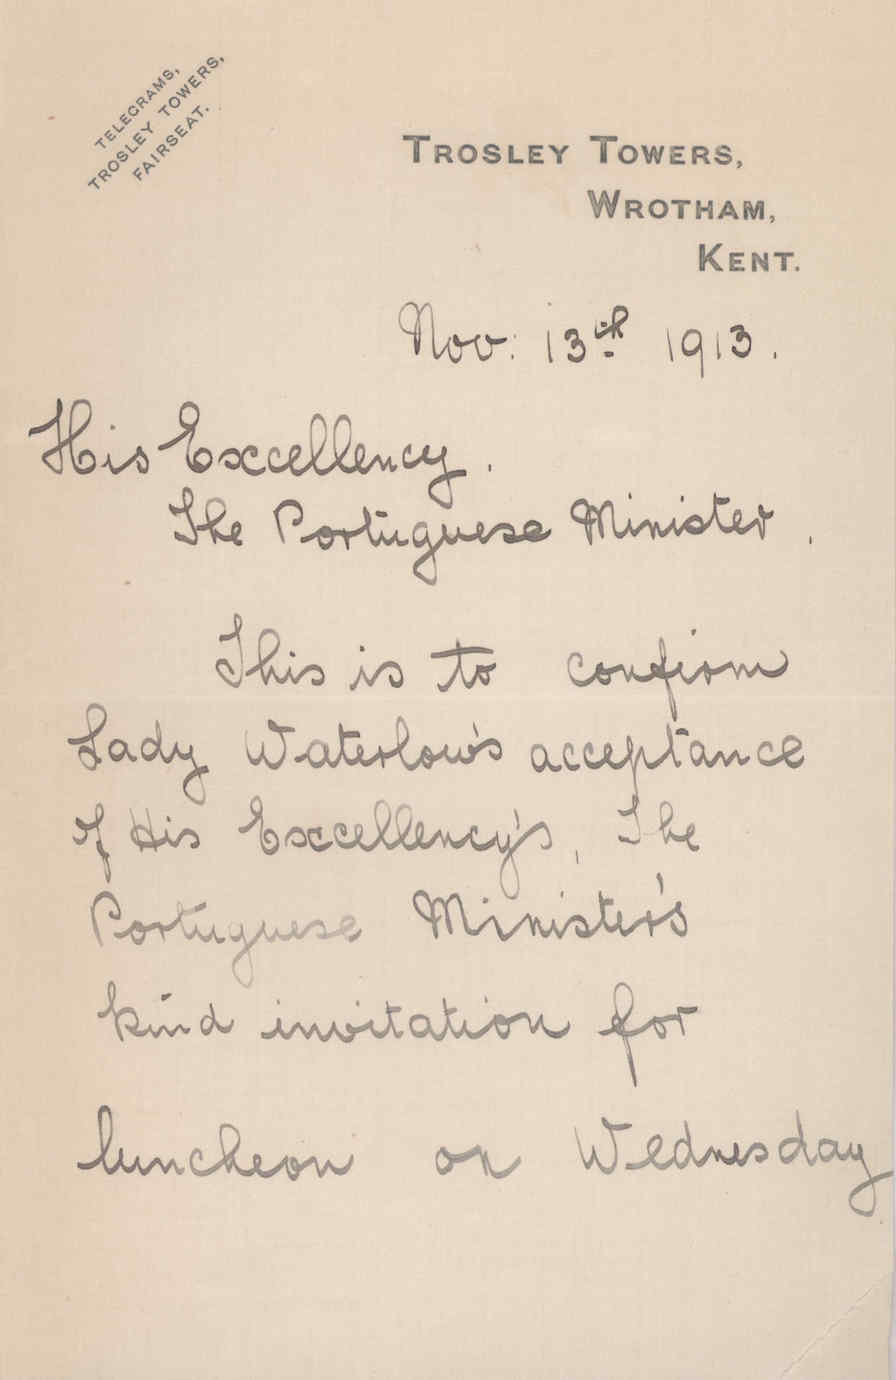 TELEGRAMS,
TROSLEY TOWERS,
FAIRSEAT.
TROSLEY TOWERS,
WROTHAM,
KENT.
Nov: 13th 1913.
His Excellency.
The Portuguese Minister.
This is to confirm
Lady Waterlow's acceptance
of His Excellency's, The
Portuguese Minister's
kind invitation for
luncheon on Wednesday